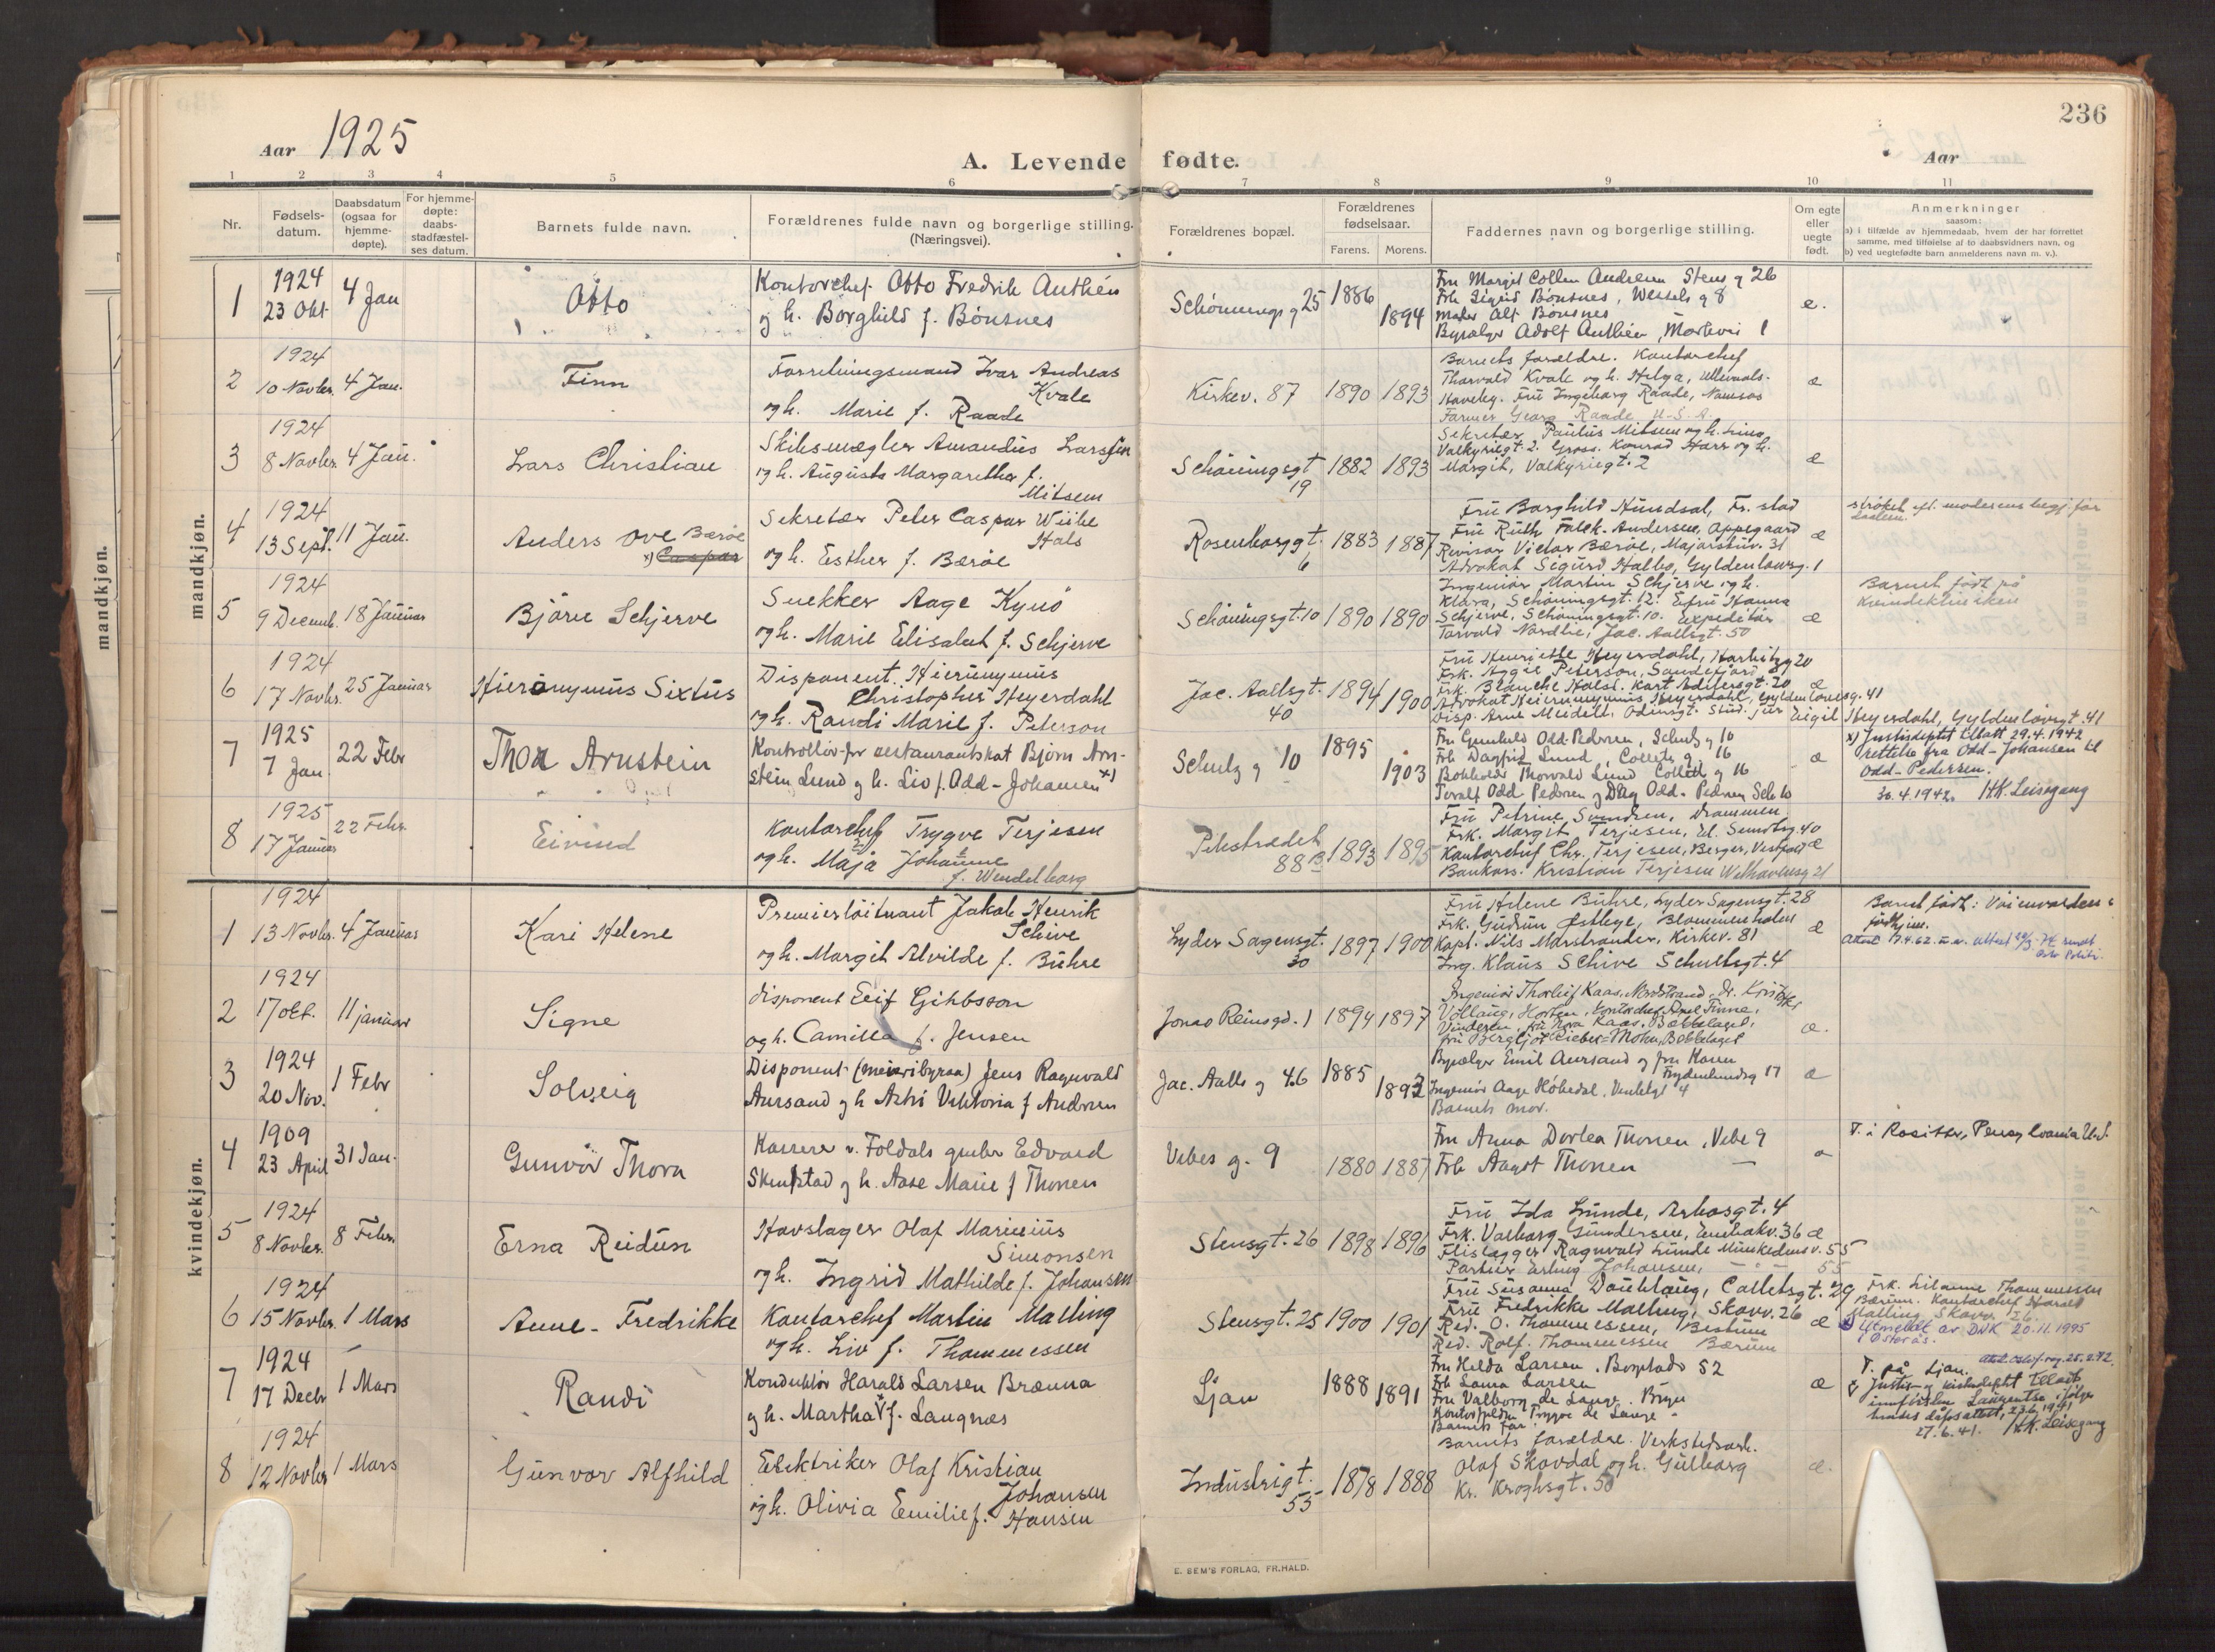 236
Aar 1925
A. Levende fødte.
Aar
1 2 3 4 5 6 7 8 9 10 11
Nr.
Fødsels-
datum.
Daabsdatum
(ogsaa for
hjemme-
døpte).
For hjemme-
døpte:
daabs-
stadfæstel-
ses datum.
Barnets fulde navn.
Forældrenes fulde navn og borgerlige stilling.
(Næringsvei).
Forældrenes bopæl.
Forældrenes
fødselsaar.
Farens. Morens.
Faddernes navn og borgerlige stilling.
Om egte
eller
uegte
født.
Anmerkninger
saasom:
a) i tilfælde av hjemmedaab, hvem der har forrettet
samme, med tilføielse af to daabsvidners navn, og
b) ved uegtefødte barn anmelderens navn m. v.).
mandkjøn.
mandkjøn.
1
1924
23 Okt
4 Jan
Otto
Kontorchef Otto Fredrik Anthén
og h. Borghild f. Bönsnes
Schönings g 25
1886
1894
Fru Margit Collin Andresen Stens g 26
Frk Sigrid Bönsnes, Wessels g 8
Alf Bönsnes
Byselger Adolf Anthén, 1
e.
2
1924
10 Novbr.
4 Jan.
Finn
Forretningsmand Ivar Andreas
Kvale
og h. Marie f. Raade
Kirkev. 87
1890
1893
Barnets forældre. Kontorchef
Thorvald Kvale og h. Helga, Ullevaals-
Havebg. Fru Ingeborg Raade, Namsos
Farmer Georg Raade U.S.A.
æ
3
1924
8 Novbr
4 Jan.
Lars Christian
Skibsmægler Amandus Larssen
og h. Augusta Margarethe f.
Mitsem
Schöningsgt
19
1882
1893
Sekretær Paulus Mitsem og h.
Valkyriegt. 2. Gross. Konrad og h.
Margit, Valkyriegt. 2
æ
4
1924
13 Sept.
11 Jan.
Anders Ove Bærøe
x) Caspar
Sekretær Peter Caspar Wiibe
Hals
og h. Esther f. Bærøe
Rosenborggt.
6
1883
1887
Fru Borghild Hundsal, Fr. stad
Fru Ruth Falck-Andersen, Oppegaard
Revisor Victor Bærøe, Majorstuv. 31
Advokat Sigurd Halbo, Gyldenløvesg. 1
æ
strøket eft. moderens begj. før
daaben.
5
1924
9 Decemb.
18 Januar
Björn Schjerve
Snekker Aage Kynö
og h. Marie Elisabet f. Schjerve
Schöningsgt. 10
1890
1890
Ingeniör Martin Schjerve og h.
Klara, Schöningsgt. 12. Enfru Hanna
Schjerve, Schöningsgt. 10. Expeditör
Torvald Nordlie, Jac. Aallsgt. 50
æ
Barnet født på
Kvindeklinikken
6
1924
17 Novbr.
25 Januar
Hieronymus Sixtus
Disponent Hieronymus
Christopher Heyerdahl
og h. Randi Marie f. Peterson
Jac. Aallsgt.
40
1894
1900
Fru Henriette Heyerdahl, Harbitzg 20
Frk. Aggie Peterson, Sandefjord
Frk. Blanche Holst. Kort Adelersgt. 20
Advokat Heieronymus Heyerdahl, Gyldenlövesg. 41
Disp. Arne Meidell, Odinsgt. Stud. jur Eigil Heyerdahl, Gyldenløvsgt. 41
æ
7
1925
7 Jan
22 Febr
Thor Arnstein
Kontrollör for restaurantskat Björn Arn-
stein Lund og h. Liv f. Odd-Johansen x)
Schultz g 10
1895
1903
Fru Gunhild Odd Pedersen, Schultz g 10
Frk Dagfrid Lund, Colletts g. 16
Bokholder Thorvald Lund Collett g 16
Toralf Odd Pedersen og Dag Odd-Pedersen Sch 10
æ
x) Justisdeptet tillatt 29.4.1942
rettelse fra Odd-Johansen til
Odd-Pedersen.
30.4.1942. H.K. Leisegang
8
1925
17 Januar
22 Febr.
Eivind
Kontorchef Trygve Terjesen
og h. Maja Johanne
f. Wendelborg
Pilestrædet
88 B
1893
1895
Fru Petrine Svendsen, Drammen
Frk. Margit Terjesen, Ed. Sundtsg. 40
Kontorchef Chr. Terjesen, Berger, Vestfold
Bankass. Kristian Terjesen Welhavensg 21
æ
kvindekjøn.
1
1924
13 Novbr.
4 Januar
Kari Helene
Premierlöitnant Jakob Henrik
Schive
og h. Margit Alvilde f. Bühre
Lyder Sagensgt.
30
1897
1900
Fru Helene Bühre, Lyder Sagensgt. 28
Frk. Gudrun Østbye, Blommenholm
Kapt. Nils Marstrander, Kirkev. 81
Ing. Klaus Schive Schultsgt. 4
æ
2
1924
17 okt.
11 januar
Signe
disponent Leif Gibbsson
og h. Camilla f. Jensen
Jonas Reinsgd. 1
1894
1897
Ingeniör Thorleif Kaas, Nordstrand, Dr. Kristoffer
Vollaug, Horten, kontorchef Axel Finne,
Vinderen, fru Nora Kaas, Bækkelaget,
fru Bergljot Rieber-Mohn, Bækkelaget
æ.
3
1924
20 Nov.
1 Febr
Solveig
Disponent (meieribyraa) Jens Ragnvald
Aursand og h Astri Viktoria f Andresen
Jac. Aalls g 46
1885
1892
Byselger Emil Aursand og fru Karen
Frydenlundsg 17
Ingeniör Aage Hobedal, 4
Barnets mor.
æ
4
1909
23 April
31 Jan.
Gunvör Thora
Kasserer v. Foldals gruber Edvard
Skenstad og h. Aase Marie f Thonen
Vibes g. 9
1880
1887
Fru Anna Dortea Thonen, Vibe 9
Frk Aagot Thonen —
5
1924
8 Novbr.
8 Febr.
Erna Reidun
Hovslager Olaf Marinius
Simonsen
og h. Ingrid Mathilde f. Johansen
Stensgt. 26
1898
1896
Fru Ida Lunde, Arbosgt. 4
Frk. Valborg Gundersen, 36
Flislægger Ragnvald Lunde Munkedamsv. 55
Portier Erling Johansen, — " — 55
æ
6
1924
15 Novbr.
1 Mars
Anne-Fredrikke
Kontorchef Martin Malling
og h. Liv f. Thommessen
Stensgt. 25
1900
1901
Fru Susanna Dauhlaug, Colletsgt. 29
Fru Fredrikke Malling, Skovv. 26
Red. O. Thommessen, Bestum
Red. Rolf Thommessen Bærum
æ
Frk. Thommessen
Bærum. Kontorchef Harald
Malling, Skovv. 26.
Utmeldt av DNK 20.11.1995
i Østerås.
7
1924
17 Decbr
1 Mars
Randi
Konduktör Harald Larsen Brænna
og h. Martha f. Laugnæs
Ljan
1888
1891
Fru Hilda Larsen. Bogstadv 52
Frk Laura Larsen
Fru Valborg de Lange. Bryn
Kontorfuldm Trygve de Lange "
Barnets far
æ
F. på Ljan.
27.6.41. H.K. Leisegang
8
1924
12 Novbr
1 Mars
Gunvor Alfhild
Elektriker Olaf Kristian
Johansen
og h. Olivia Emilie f. Hansen
Industrigt.
55
1878
1888
Barnets forældre. Verkstedsarb.
Olaf Skovdal og h. Gulborg
Kr. Kroghsgt. 50
æ.
E. SEM'S FORLAG, FR.HALD.